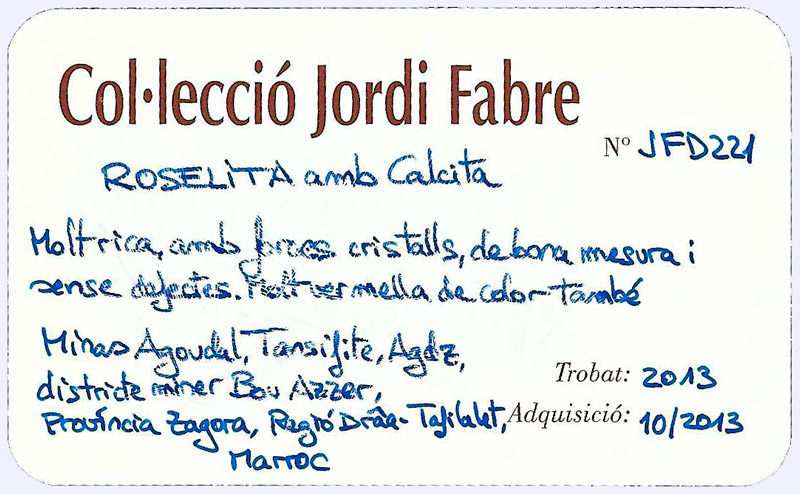 Col·lecció Jordi Fabre
Nº JFD221
ROSELITA amb Calcita
Molt rica, amb forces cristalls, de bona mesura i
sense defectes. Molt vermella de color també
Minas Agoudal, Tansifite, Agdz,
districte miner Bou Azzer,
Província Zagora, Regió Drâa-Tafilalet,
Marroc
Trobat: 2013
Adquisició: 10/2013